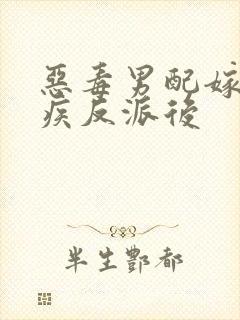 惡毒男配嫁
疾反派後
半生酆都